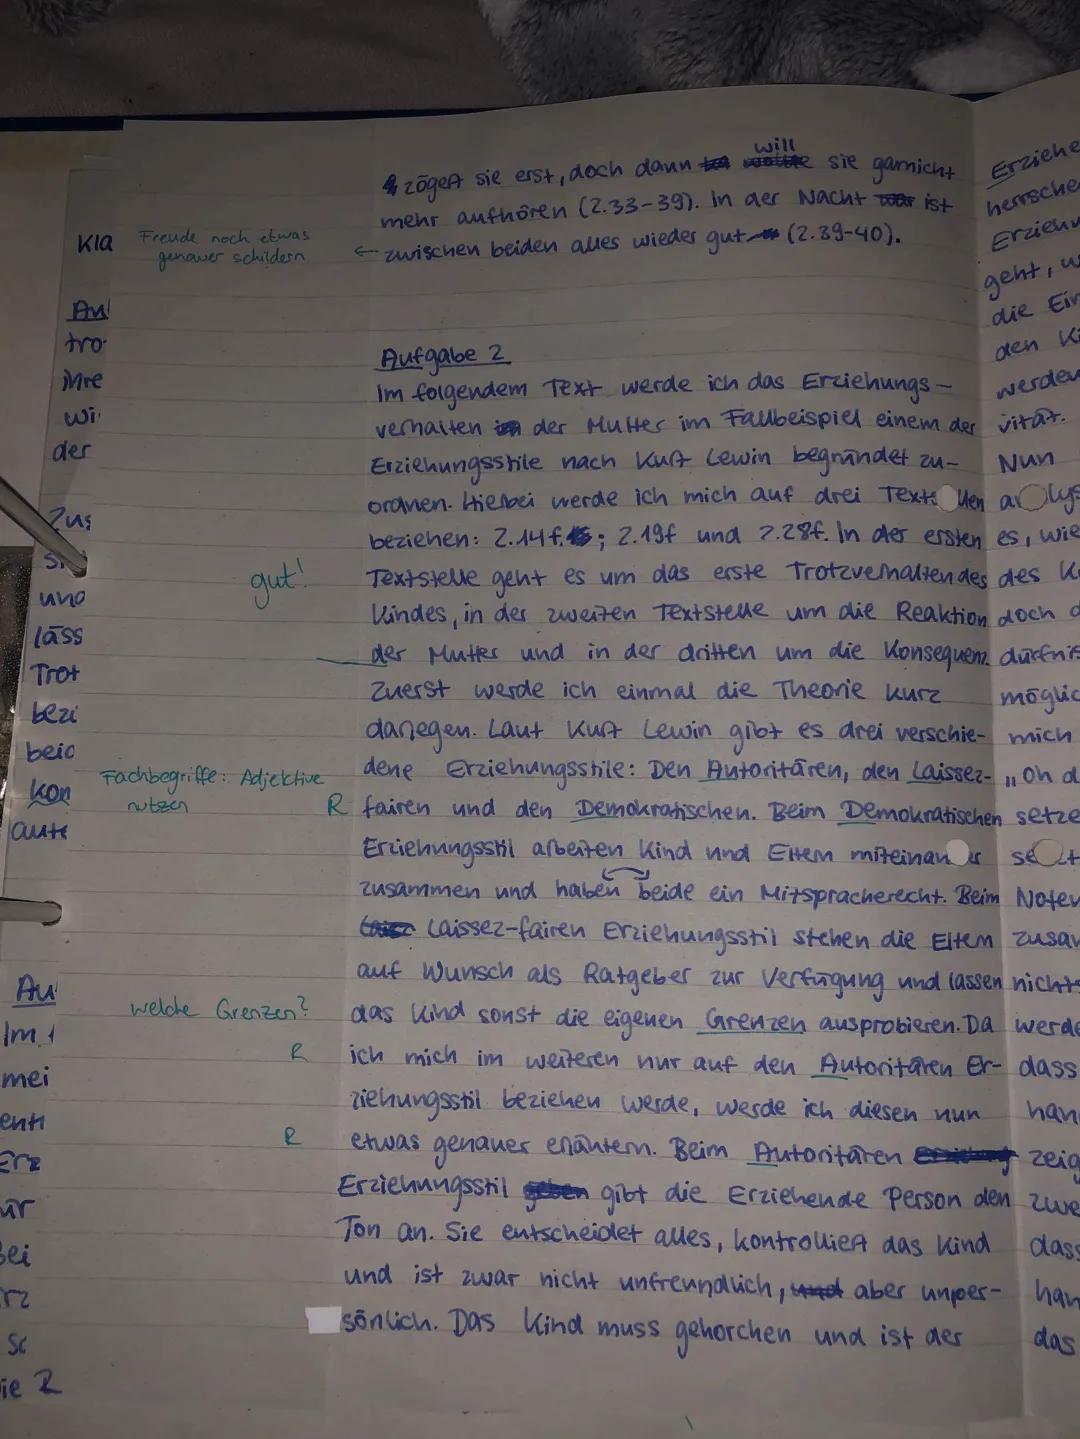 will
zögert sie erst, doch dann sie garnicht
mehr aufhören (Z.33-39). In der Nacht ist
zwischen beiden alles wieder gut (Z.39-40).
Freude noch etwas
genauer schildern
Aufgabe 2
Im folgendem Text werde ich das Erziehungs-
verhalten der Mutter im Fallbeispiel einem der
Erziehungsstile nach Kurt Lewin begründet zu-
ordnen. Hierbei werde ich mich auf drei
beziehen: Z.14f.; Z.19f und Z.28f. In der ersten
gut!
Textstelle geht es um das erste Trotzverhalten des
Kindes, in der zweiten Textstelle um die Reaktion
der Mutter und in der dritten um die Konsequenz.
Zuerst werde ich einmal die Theorie kurz
darlegen. Laut Kurt Lewin gibt es drei verschie-
dene Erziehungsstile: Den Autoritären, den Laissez-
Fachbegriffe: Adjektive
nutzen
R fairen und den Demokratischen. Beim Demokratischen
Erziehungsstil arbeiten Kind und Eltern
zusammen und haben beide ein Mitspracherecht. Beim
Laissez-fairen Erziehungsstil stehen die Eltern
auf Wunsch als Ratgeber zur Verfügung und lassen
welche Grenzen?
das Kind sonst die eigenen Grenzen ausprobieren. Da
R ich mich im weiteren nur auf den Autoritären Er-
ziehungsstil beziehen werde, werde ich diesen nun
R etwas genauer erläutern. Beim Autoritären
Erziehungsstil gibt die Erziehende Person den
Ton an. Sie entscheidet alles, kontrolliert das Kind
und ist zwar nicht unfreundlich, aber unper-
sönlich. Das Kind muss gehorchen und ist der
Kla
tro-
ihre
wi
der
und
läss
Trot
bezi
beid
kon
auto
Im
mei
Erz
Erziehe
herrsche
Erziehu
geht, w
die Ein
den Ki
werden
vität.
Nun
es, wie
des K
doch d
dürfnis
möglic
mich
„Oh d
setze
Noten
zusam
nichts
werde
dass
han
zeig
zwe
dass
han
das